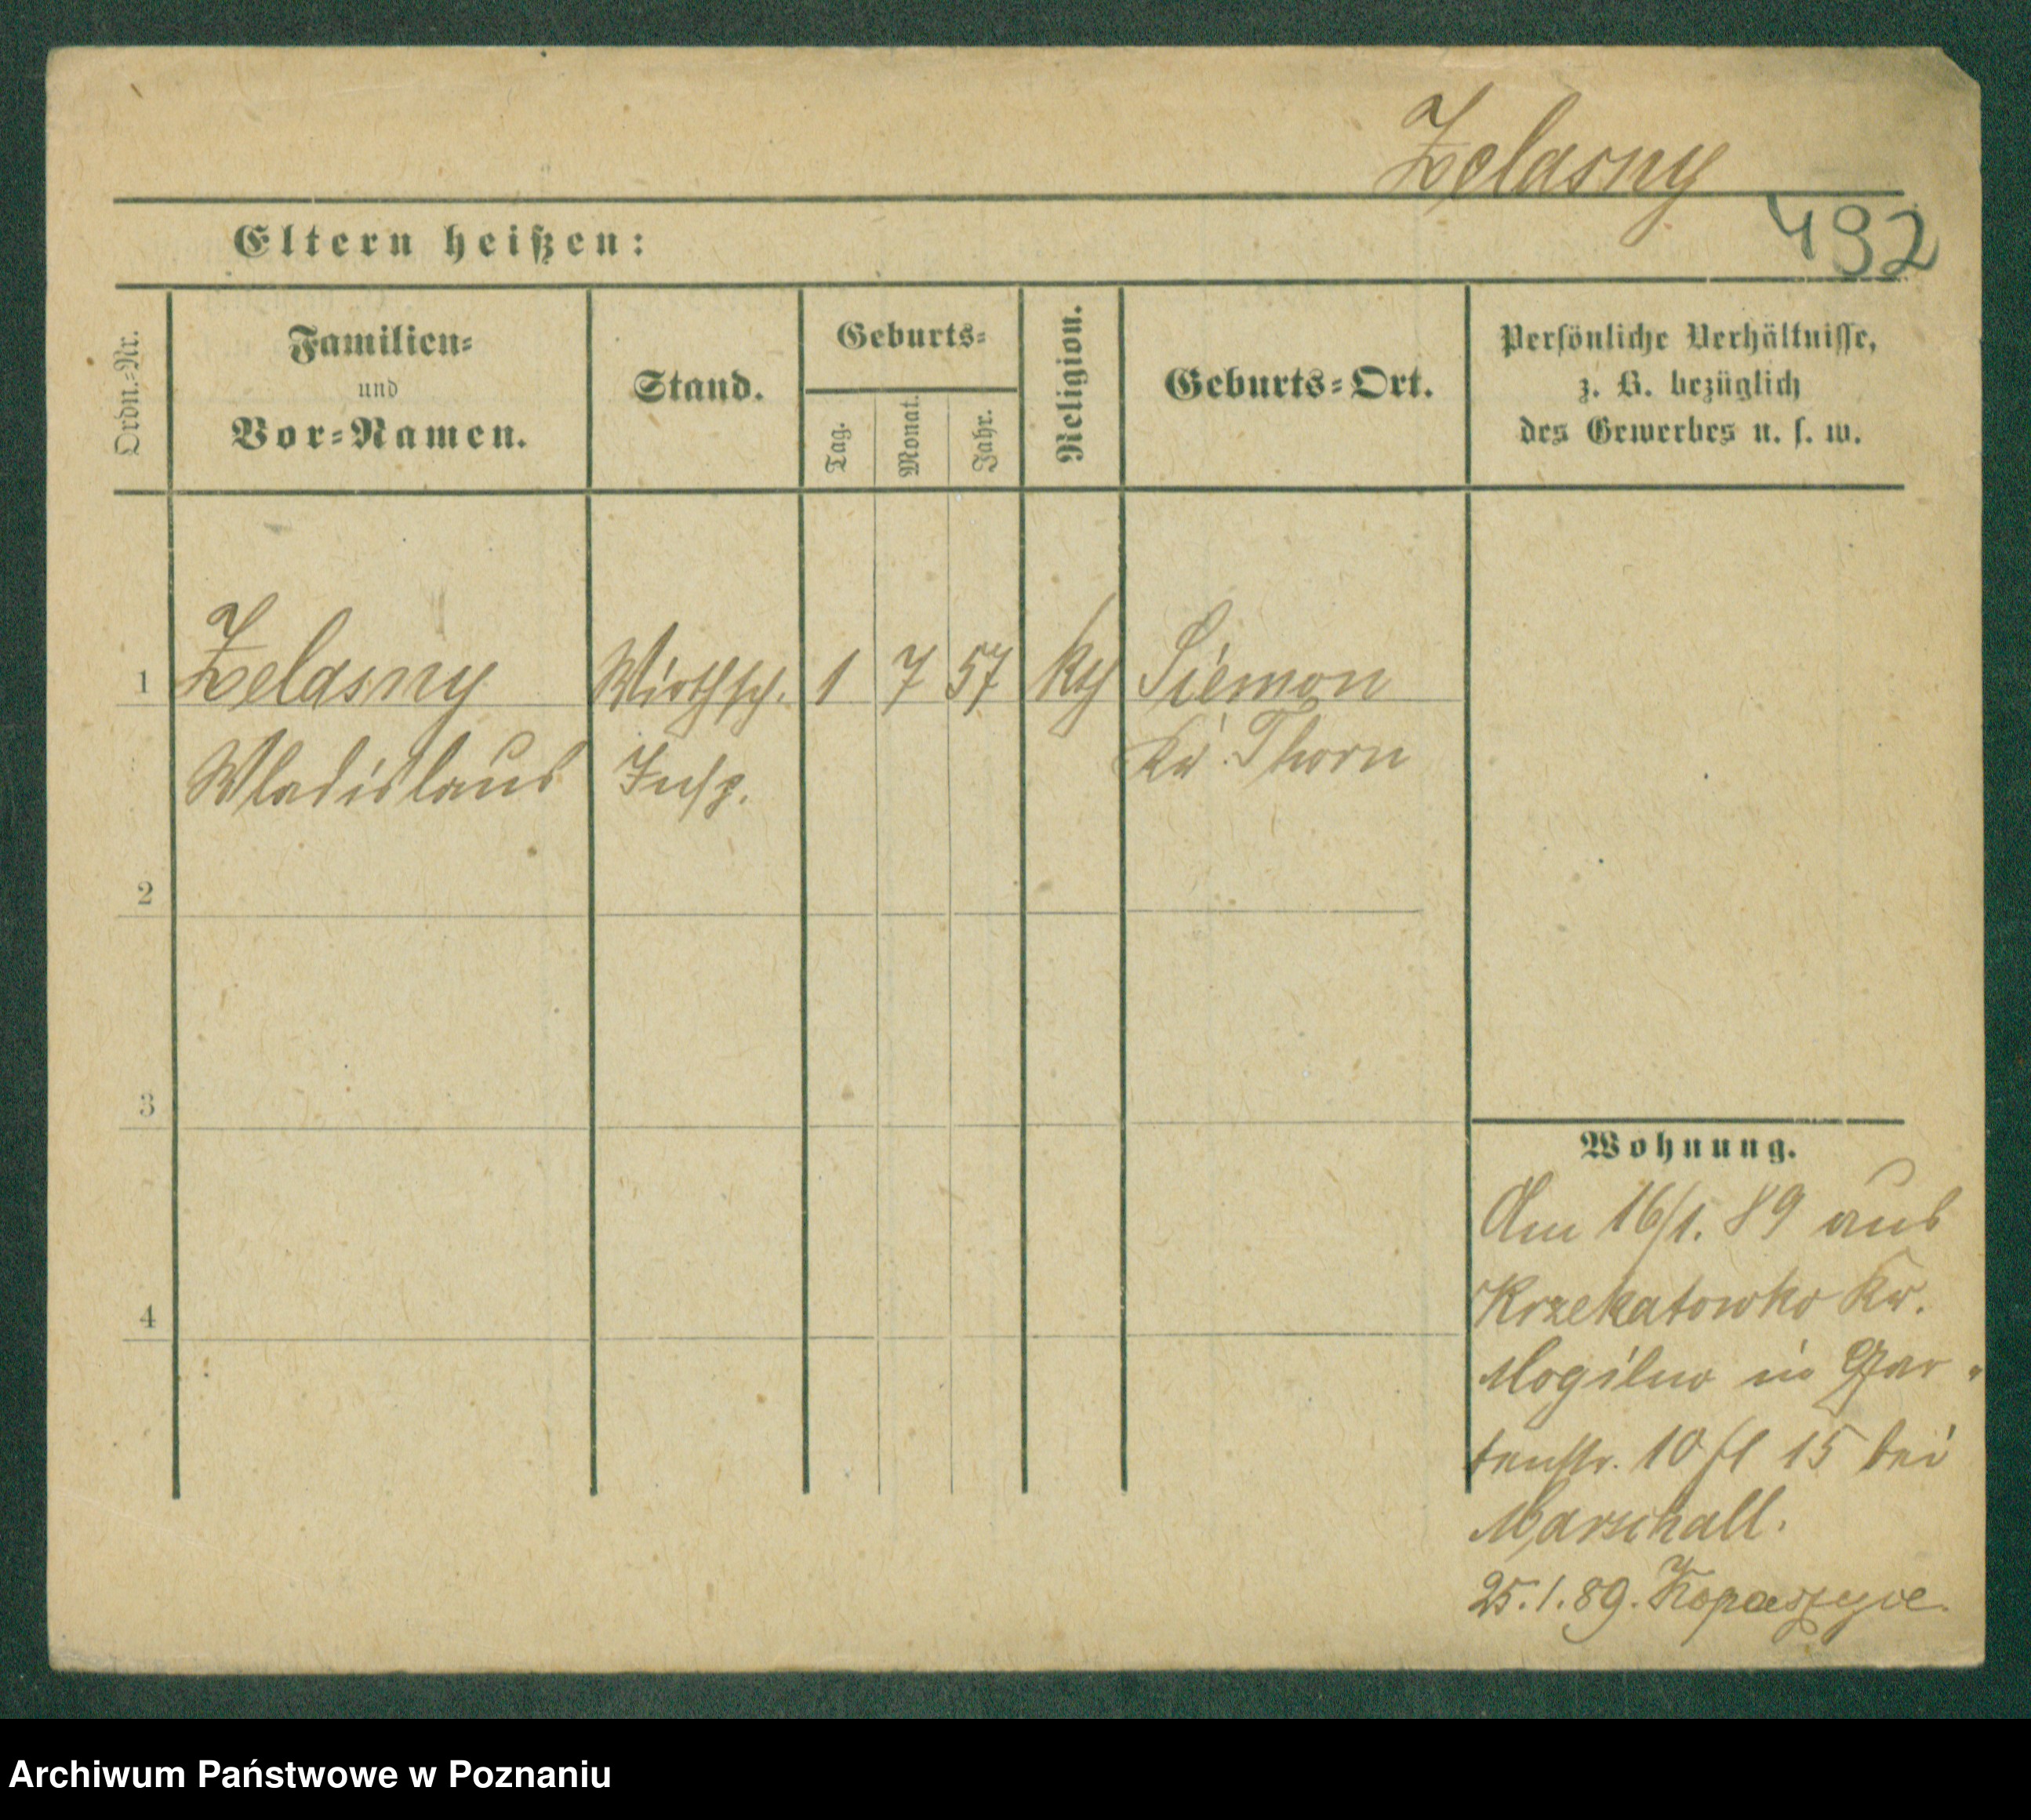 Zelasny
492
Eltern heißen:
Ordn.-Nr.
Familien-
und
Vor-Namen.
Stand.
Geburts-
Tag.
Monat.
Jahr.
Religion.
Geburts-Ort.
Persönliche Verhältnisse,
z. B. bezüglich
des Gewerbes u. s. w.
1 Zelasny Wirthsch. 1 7 57 kth Siemon
Wladislaus Insp. Kr. Thorn
2
3
4
Wohnung.
Am 16/1. 89 aus
Krzekatowko Kr.
Mogilno in Gar-
tenstr. 10 fl 15 bei
Marschall.
25.1.89. Kopaszyce.
Archiwum Państwowe w Poznaniu